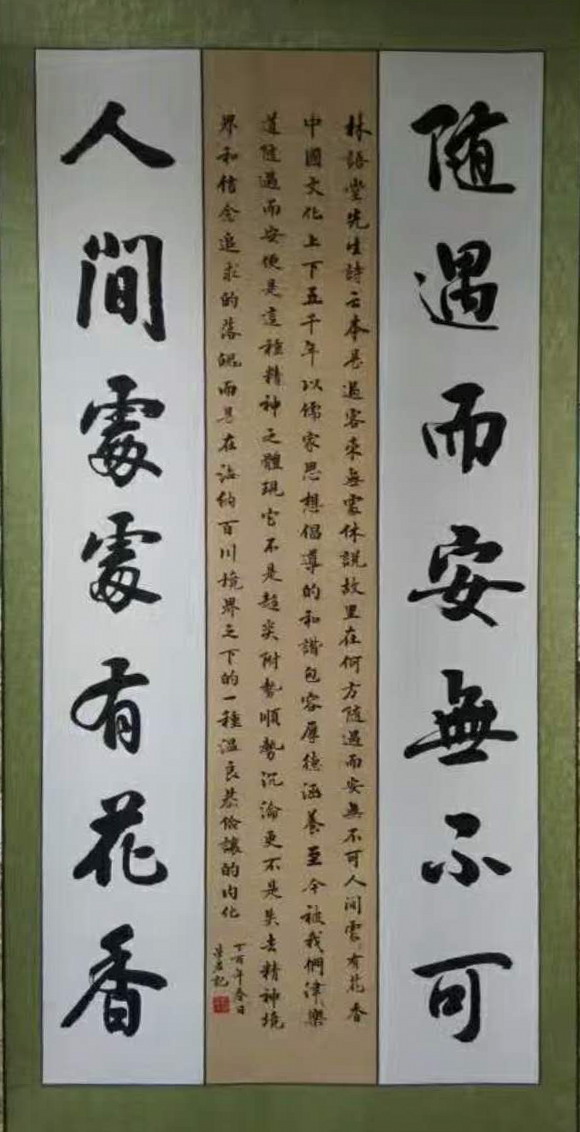 随遇而安無不可
林語堂先生詩云本是過客來無處休說故里在何方随遇而安無不可人間處々有花香
中國文化上下五千年以儒家思想倡導的和諧包容厚德涵養至今被我們津々樂
道随遇而安便是這種精神之體現它不是趨炎附勢順勢沉淪更不是失去精神境
界和信念追求的落魄而是在海納百川境界之下的一種温良恭儉讓的内化
丁酉年春日
記
人間處處有花香